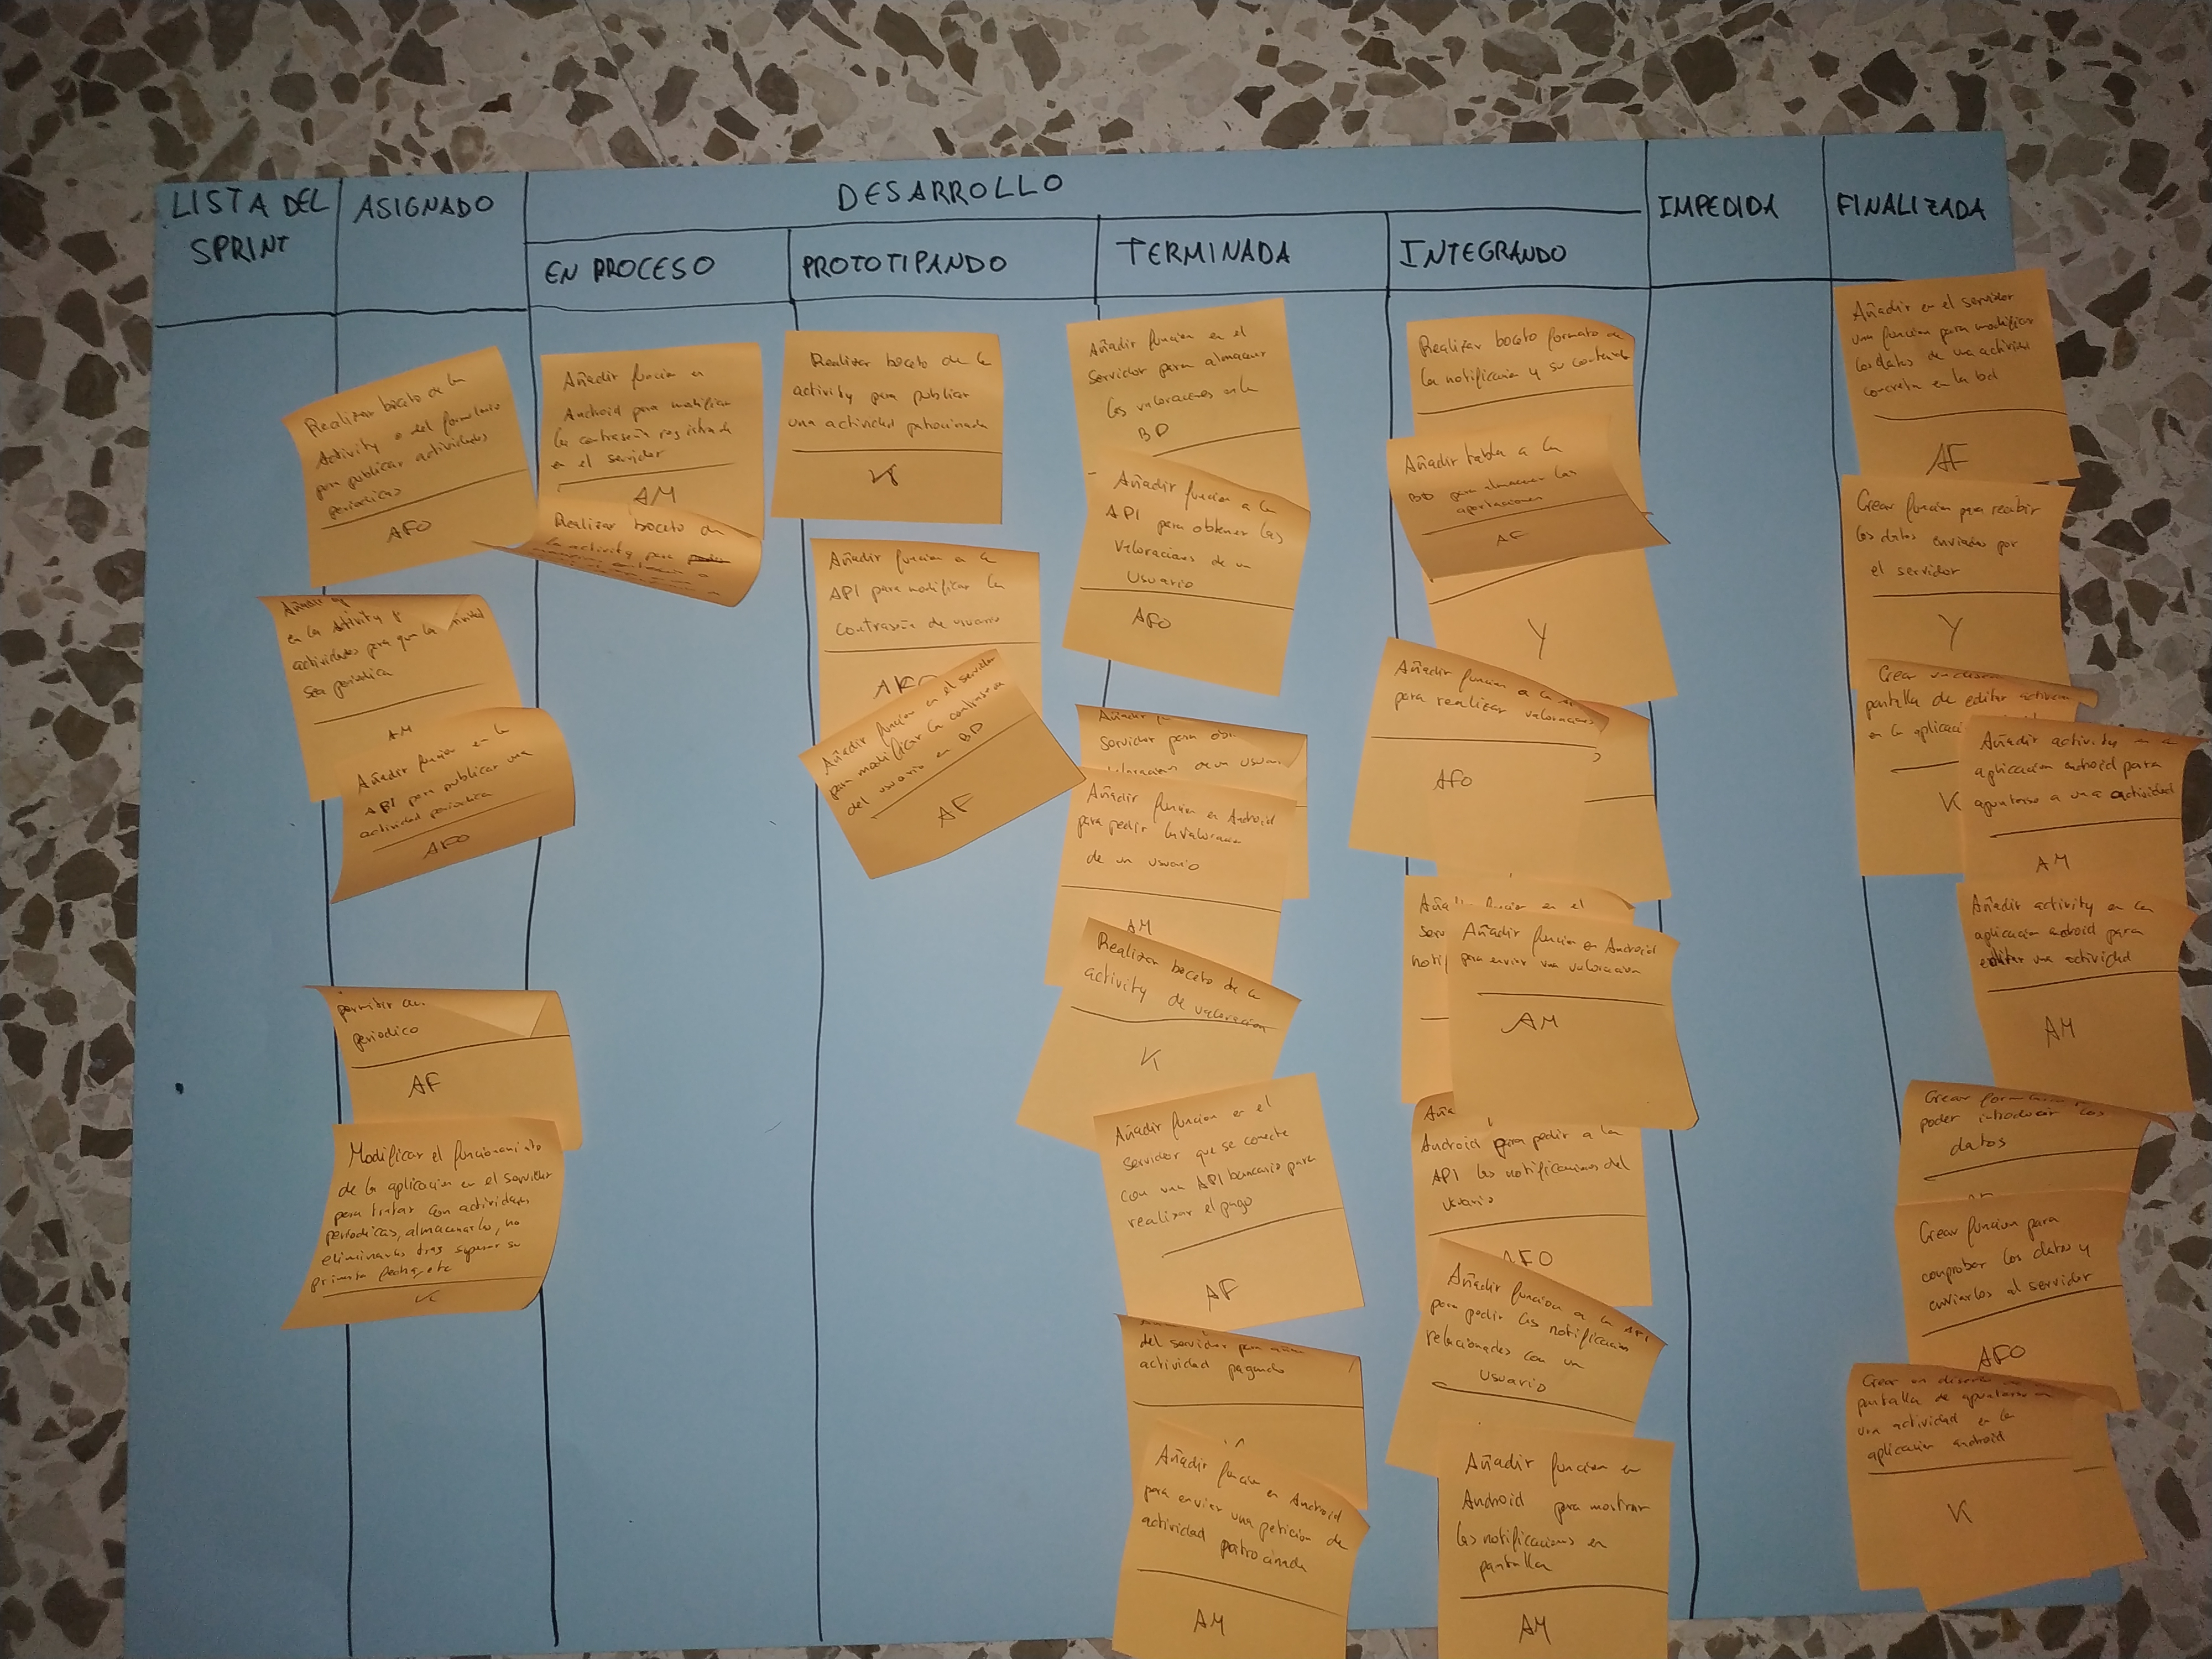 LISTA DEL
SPRINT
ASIGNADO
DESARROLLO
EN PROCESO
PROTOTIPANDO
TERMINADA
INTEGRANDO
IMPEDIDA
FINALIZADA
Realizar boceto de la
Activity o del formulario
para publicar actividades
periodicas
AFO
en la Activity
actividades para que la
sea periodica
AM
Añadir función en la
API para publicar una
actividad periodica
AFO
permitir
periodico
AF
Modificar el funcionamiento
de la aplicacion en el servidor
para tratar con actividades
periodicas, almacenarlas, no
eliminarlas tras superar su
primera fecha, etc
K
Añadir función en
Android para modificar
la contraseña registrada
en el servidor
AM
Realizar boceto de
la activity para
Realizar boceto de la
activity para publicar
una actividad patrocinada
K
Añadir función a la
API para modificar la
contraseña de usuario
AFO
Añadir función en el servidor
para modificar la contraseña
del usuario en BD
AF
Añadir función en el
servidor para almacenar
las valoraciones en la
BD
Añadir función a la
API para obtener las
valoraciones de un
usuario
AFO
servidor para
valoraciones de un usuario
Añadir función en Android
para pedir la valoracion
de un usuario
AM
Realizar boceto de la
activity de valoracion
K
Añadir función en el
servidor que se conecte
con una API bancaria para
realizar el pago
AF
del servidor para
actividad pagando
Añadir función en Android
para enviar una peticion de
actividad patrocinada
AM
Realizar boceto formato de
la notificacion y su contenido
Añadir tabla a la
BD para almacenar las
aportaciones
AF
Y
Añadir función a la
para realizar valoraciones
AFO
Añadir función en el
Añadir función en Android
para enviar una valoracion
AM
Android para pedir a la
API las notificaciones del
usuario
AFO
Añadir función a la API
para pedir las notificaciones
relacionadas con un
usuario
Añadir función en
Android para mostrar
las notificaciones en
pantalla
AM
Añadir en el servidor
una función para modificar
los datos de una actividad
concreta en la bd
AF
Crear función para recibir
los datos enviados por
el servidor
Y
Crear
pantalla de editar
en la
K
Añadir activity en la
aplicación android para
apuntarse a una actividad
AM
Añadir activity en la
aplicación android para
editar una actividad
AM
Crear
poder introducir los
datos
Crear función para
comprobar los datos y
enviarlos al servidor
AFO
Crear un
pantalla de apuntarse a
una actividad en la
aplicación android
K